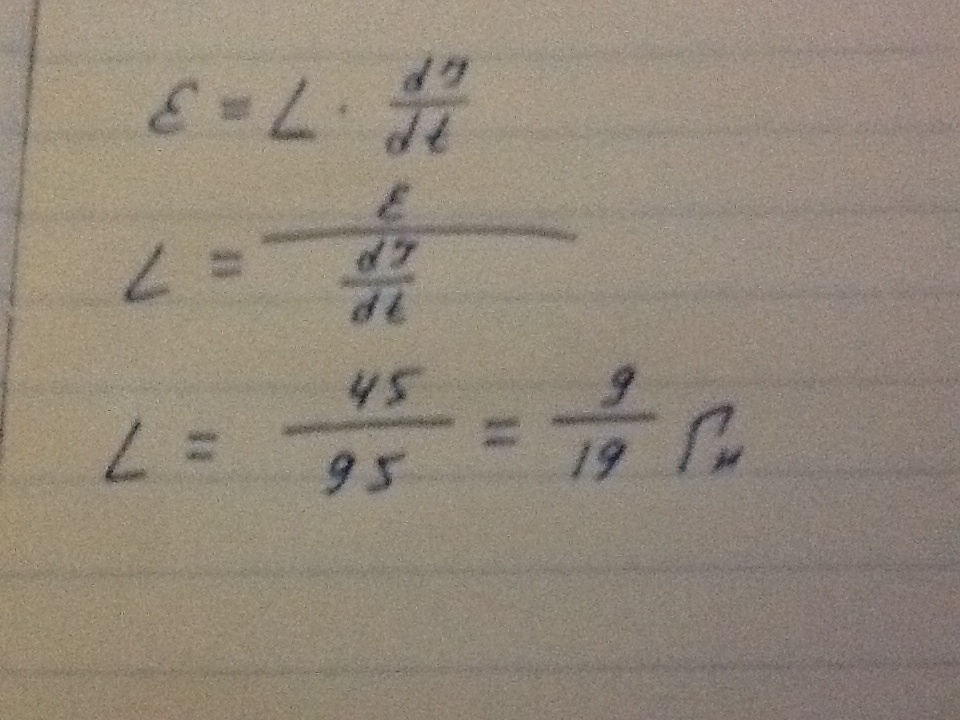 ε = L · dI/dt
L = ε / (dI/dt)
L = 45/95 = 9/19 Гн